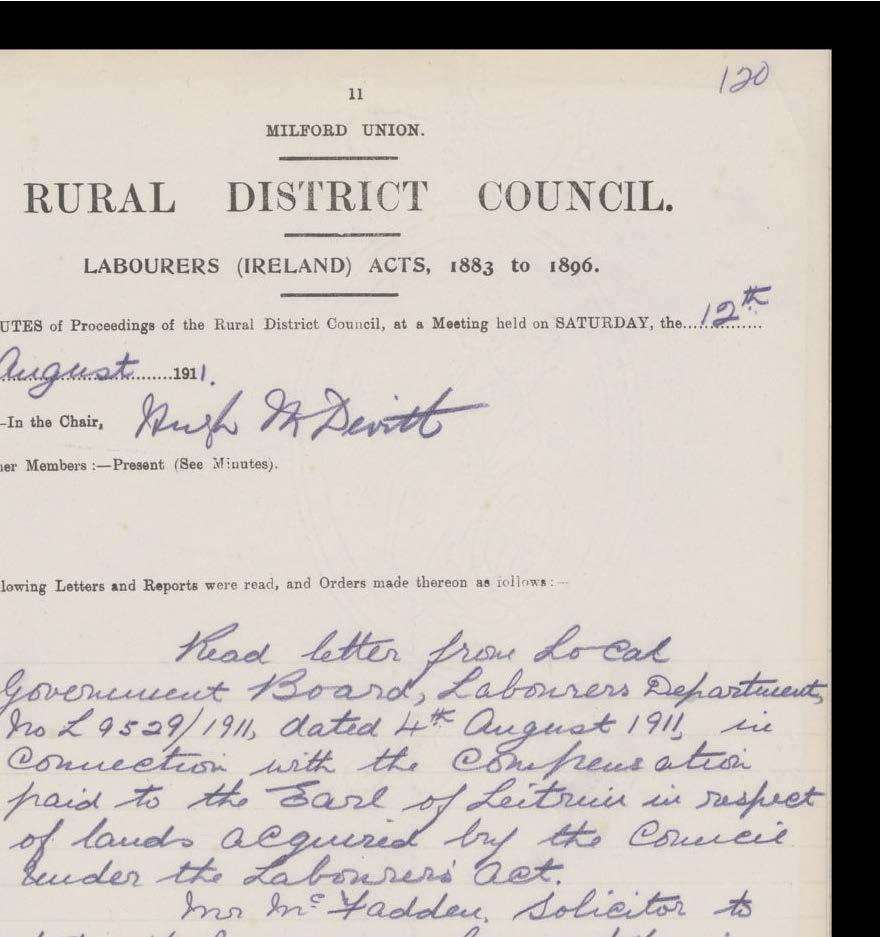 120
11
MILFORD UNION.
RURAL DISTRICT COUNCIL.
LABOURERS (IRELAND) ACTS, 1883 to 1896.
UTES of Proceedings of the Rural District Council, at a Meeting held on SATURDAY, the....12th
August........1911.
-In the Chair, Hugh McDevitt
ner Members :—Present (See Minutes).
llowing Letters and Reports were read, and Orders made thereon as follows:—
Read letter from Local
Government Board, Labourers Department,
No L 9529/1911, dated 4th August 1911, in
Connection with the Compensation
paid to the Earl of Leitrim in respect
of lands acquired by the Council
under the Labourers' act.
Mr McFadden, Solicitor to